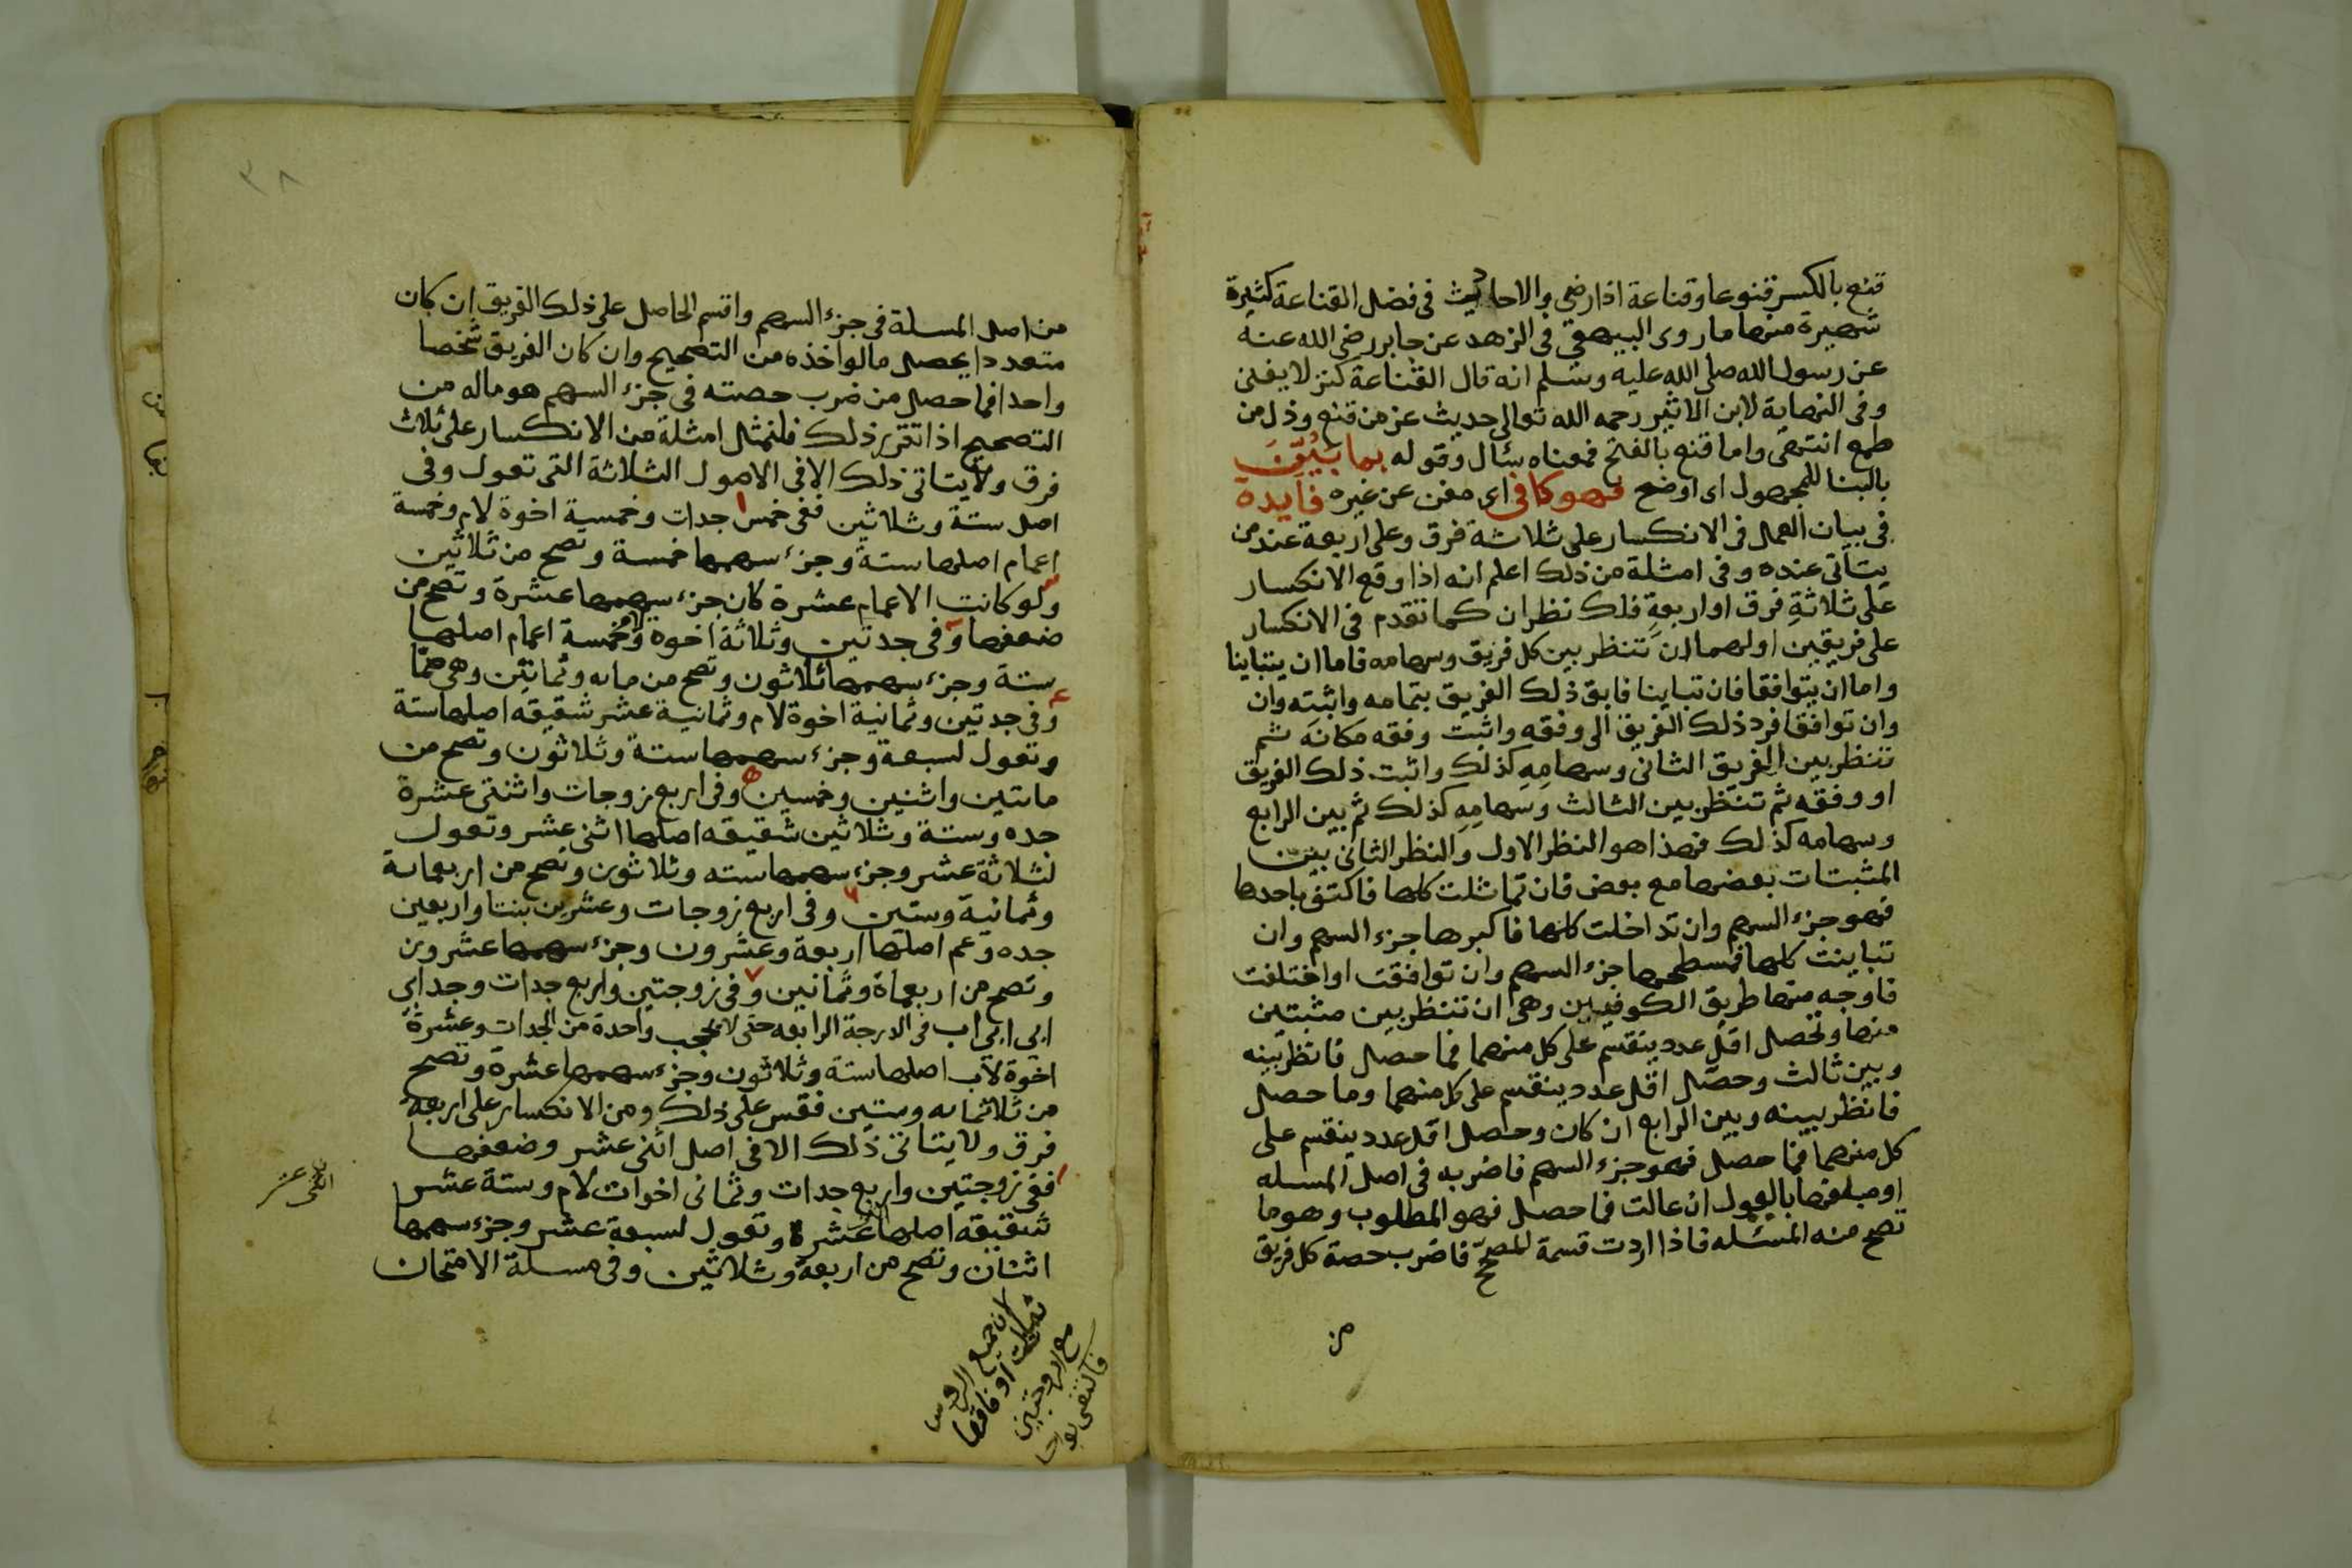 قنع بالكسر قنوعا وقناعة اذا رضي والاحاديث في فضل القناعة كثيرة
شهيرة منها ما روى البيهقي في الزهد عن جابر رضي الله عنه
عن رسول الله صلى الله عليه وسلم انه قال القناعة كنز لا يفنى
وفي النهاية لابن الاثير رحمه الله تعالى حديث عز من قنع وذل من
طمع انتهى واما قنع بالفتح فمعناه سئال وقوله بما بُيِّنَ
بالبنا للمجهول اى اوضح فهو كافي اى مغن عن غيره فايدة
في بيان العمل في الانكسار على ثلاثة فرق وعلى اربعة عند من
يتأتى عنده وفي امثلة من ذلك اعلم انه اذا وقع الانكسار
على ثلاثةِ فرق او اربعةٍ فلك نظران كما تقدم في الانكسار
على فريقين اولهما ان تنظر بين كل فريق وسهامه فاما ان يتباينا
واما ان يتوافقا فان تباينا فابق ذلك الفريق بتمامه واثبته وان
وان توافقا فرد ذلك الفريق الى وفقه واثبت وفقه مكانه ثم
تنظر بين الفريق الثاني وسهامِهِ كذلك واثبت ذلك الفريق
او وفقه ثم تنظر بين الثالث وسهامِهِ كذلك ثم بين الرابع
وسهامه كذلك فهذا هو النظر الاول والنظر الثاني بين
المثبتات بعضها مع بعض فان تماثلت كلها فاكتف باحدها
فهو جزء السهم وان تداخلت كلها فاكبرها جزء السهم وان
تباينت كلها فمسطحها جزء السهم وان توافقت او اختلفت
فاوجه منها طريق الكوفيين وهى ان تنظر بين مثبتين
منها وتحصل اقل عدد ينقسم على كل منهما فما حصل فانظر بينه
وبين ثالث وحصّل اقل عدد ينقسم على كل منهما وما حصل
فانظر بينه وبين الرابع ان كان وحصل اقل عدد ينقسم على
كل منهما فما حصل فهو جزء السهم فاضربه في اصل المسله
او مبلغها بالعول ان عالت فما حصل فهو المطلوب وهو ما
تصح منه المسئله فاذا اردت قسمة المصحّح فاضرب حصة كل فريق
من
٣٨
من اصل المسلة في جزء السهم واقسم الحاصل على ذلك الفريق ان كان
متعددا يحصل ما لواحده من التصحيح وان كان الفريق شخصا
واحدا فما حصل من ضرب حصته في جزء السهم هو ماله من
التصحيح اذا تقرر ذلك فلنمثل امثلة من الانكسار على ثلاث
فرق ولا يتاتى ذلك الا في الاصول الثلاثة التى تعول وفي
اصل ستة وثلاثين ففي خمس جدات وخمسة اخوة لام وخمسة
اعمام اصلها ستة وجزء سهمها خمسة وتصح من ثلاثين
ولو كانت الاعمام عشرة كان جزء سهمها عشرة وتصح من
ضعفها وفي جدتين وثلاثة اخوة وخمسة اعمام اصلها
ستة وجزء سهمها ثلاثون وتصح من مايه وثمانين وهى صمّا
وفي جدتين وثمانية اخوة لام وثمانية عشر شقيقه اصلها ستة
وتعول لسبعة وجزء سهمها ستة وثلاثون وتصح من
مايتين واثنين وخمسين وفي اربع زوجات واثنتى عشرة
جده وستة وثلاثين شقيقه اصلها اثنى عشر وتعول
لثلاثة عشر وجزء سهمها سته وثلاثون وتصح من اربعماية
وثمانية وستين وفي اربع زوجات وعشرين بنتا واربعين
جده وعم اصلها اربعة وعشرون وجزء سهمها عشرون
وتصح من اربعماة وثمانين وفي زوجتين واربع جدات وجد ابي
ابي ابي اب في الدرجة الرابعه حتى لا يحجب واحدة من الجدات وعشرة
اخوة لاب اصلها ستة وثلاثون وجزء سهمها عشرة وتصح
من ثلاثمايه وستين فقس على ذلك ومن الانكسار على اربعة
فرق ولا يتاتى ذلك الا في اصل اثنى عشر وضعفها
ففي زوجتين واربع جدات وثمانى اخوات لام وستة عشر
شقيقه اصلها عشرة وتعول لسبعة عشر وجزء سهمها
اثنان وتصح من اربعة وثلاثين وفي مسلة الامتحان
اثنى عشر
لان جميع الروس